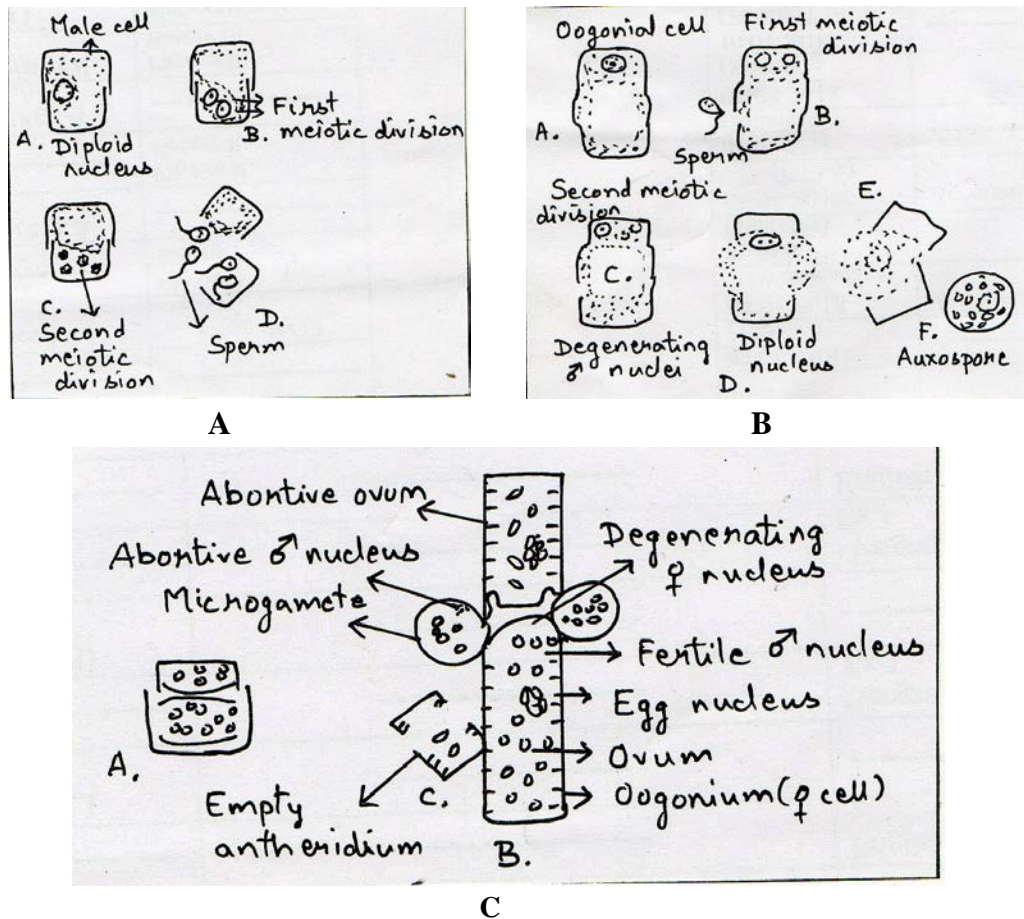 Male cell
A. Diploid
nucleus
First
B. meiotic division
C.
Second
meiotic
division
D.
Sperm
A
Oogonial cell
First meiotic
division
A.
B.
Sperm
Second meiotic
division
C.
Degenerating
♂ nuclei
Diploid
nucleus
D.
E.
F.
Auxospore
B
Abortive ovum
Abortive ♂ nucleus
Microgamete
Degenerating
♀ nucleus
Fertile ♂ nucleus
Egg nucleus
Ovum
Oogonium (♀ cell)
A.
Empty
antheridium
C.
B.
C